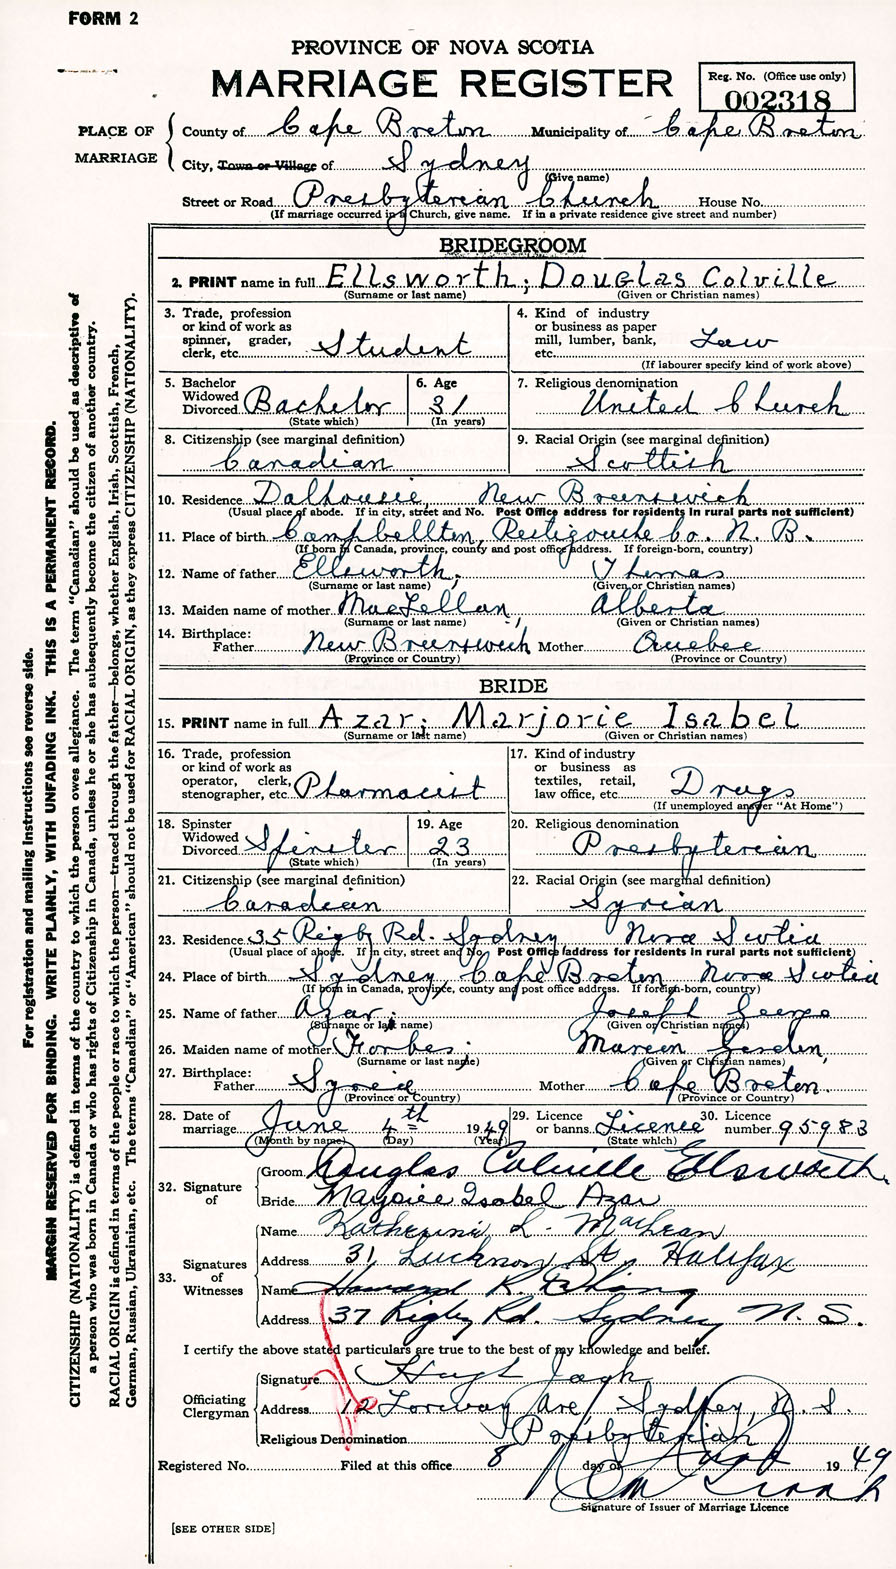 FORM 2
PROVINCE OF NOVA SCOTIA
MARRIAGE REGISTER
Reg. No. (Office use only)
002318
PLACE OF MARRIAGE
County of Cape Breton Municipality of Cape Breton
City, Town or Village of Sydney
(Give name)
Street or Road Presbyterian Church House No.
(If marriage occurred in a Church, give name. If in a private residence give street and number)
BRIDEGROOM
2. PRINT name in full Ellsworth; Douglas Colville
(Surname or last name) (Given or Christian names)
3. Trade, profession or kind of work as spinner, grader, clerk, etc. Student
4. Kind of industry or business as paper mill, lumber, bank, etc. Law
(If labourer specify kind of work above)
5. Bachelor Widowed Divorced Bachelor
(State which)
6. Age 31
(In years)
7. Religious denomination United Church
8. Citizenship (see marginal definition) Canadian
9. Racial Origin (see marginal definition) Scottish
10. Residence Dalhousie, New Brunswick
(Usual place of abode. If in city, street and No. Post Office address for residents in rural parts not sufficient)
11. Place of birth Campbellton, Restigouche Co. N. B.
(If born in Canada, province, county and post office address. If foreign-born, country)
12. Name of father Ellsworth; Thomas
(Surname or last name) (Given or Christian names)
13. Maiden name of mother MacLellan; Alberta
(Surname or last name) (Given or Christian names)
14. Birthplace: Father New Brunswick Mother Quebec
(Province or Country) (Province or Country)
BRIDE
15. PRINT name in full Azar; Marjorie Isabel
(Surname or last name) (Given or Christian names)
16. Trade, profession or kind of work as operator, clerk, stenographer, etc. Pharmacist
17. Kind of industry or business as textiles, retail, law office, etc. Drugs
(If unemployed answer "At Home")
18. Spinster Widowed Divorced Spinster
(State which)
19. Age 23
(In years)
20. Religious denomination Presbyterian
21. Citizenship (see marginal definition) Canadian
22. Racial Origin (see marginal definition) Syrian
23. Residence 35 Rigby Rd. Sydney Nova Scotia
(Usual place of abode. If in city, street and No. Post Office address for residents in rural parts not sufficient)
24. Place of birth Sydney, Cape Breton Nova Scotia
(If born in Canada, province, county and post office address. If foreign-born, country)
25. Name of father Azar; Joseph George
(Surname or last name) (Given or Christian names)
26. Maiden name of mother Forbes;
(Surname or last name) (Given or Christian names)
27. Birthplace: Father Syria Mother Cape Breton
(Province or Country) (Province or Country)
28. Date of marriage June 4th 1949
(Month by name) (Day) (Year)
29. Licence or banns Licence
(State which)
30. Licence number 95983
32. Signature of
Groom Douglas Colville Ellsworth
Bride Marjorie Isobel Azar
33. Signatures of Witnesses
Name Katherine L. MacLean
Address 31 Lucknow St, Halifax
Name Howard R.
Address 37 Rigby Rd. Sydney N. S.
I certify the above stated particulars are true to the best of my knowledge and belief.
Officiating Clergyman
Signature Hugh Jack
Address 12 Ave, Sydney, N. S.
Religious Denomination Presbyterian
Registered No. Filed at this office 8 day of June 1949
Signature of Issuer of Marriage Licence
[SEE OTHER SIDE]
For registration and mailing instructions see reverse side.
MARGIN RESERVED FOR BINDING. WRITE PLAINLY, WITH UNFADING INK. THIS IS A PERMANENT RECORD.
CITIZENSHIP (NATIONALITY) is defined in terms of the country to which the person owes allegiance. The term "Canadian" should be used as descriptive of
a person who was born in Canada or who has rights of Citizenship in Canada, unless he or she has subsequently become the citizen of another country.
RACIAL ORIGIN is defined in terms of the people or race to which the person—traced through the father—belongs, whether English, Irish, Scottish, French,
German, Russian, Ukrainian, etc. The terms "Canadian" or "American" should not be used for RACIAL ORIGIN, as they express CITIZENSHIP (NATIONALITY).